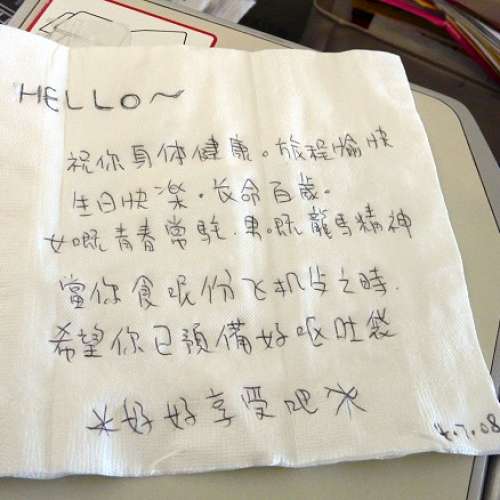 HELLO~
祝你身体健康。旅程愉快
生日快樂。长命百歲。
女嘅青春常駐.男嘅龍馬精神
當你食呢份飞机歺之時.
希望你已預備好呕吐袋
*好好享受吧*
.7.08